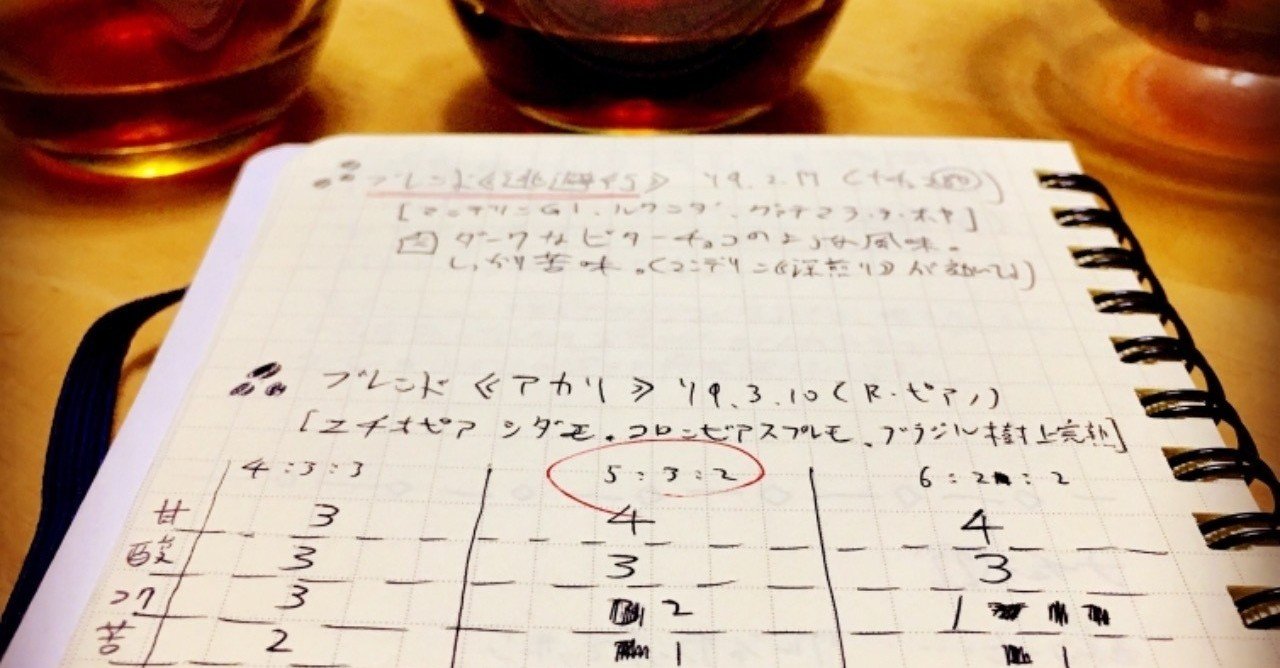 ブレンド '19.2.17
[マンデリンG1.ルワンダ.グァテマラ・ラ・
ダークなビターチョコのような風味。
しっかり苦味。(マンデリン《深煎り》が効いてる)
ブレンド《アカリ》'19.3.10(R.ピアノ)
[エチオピア シダモ。コロンビアスプレモ。ブラジル樹上完熟]
4:3:3 5:3:2 6:2:2
甘 3 4 4
酸 3 3 3
コク 3 2 1
苦 2 1 1